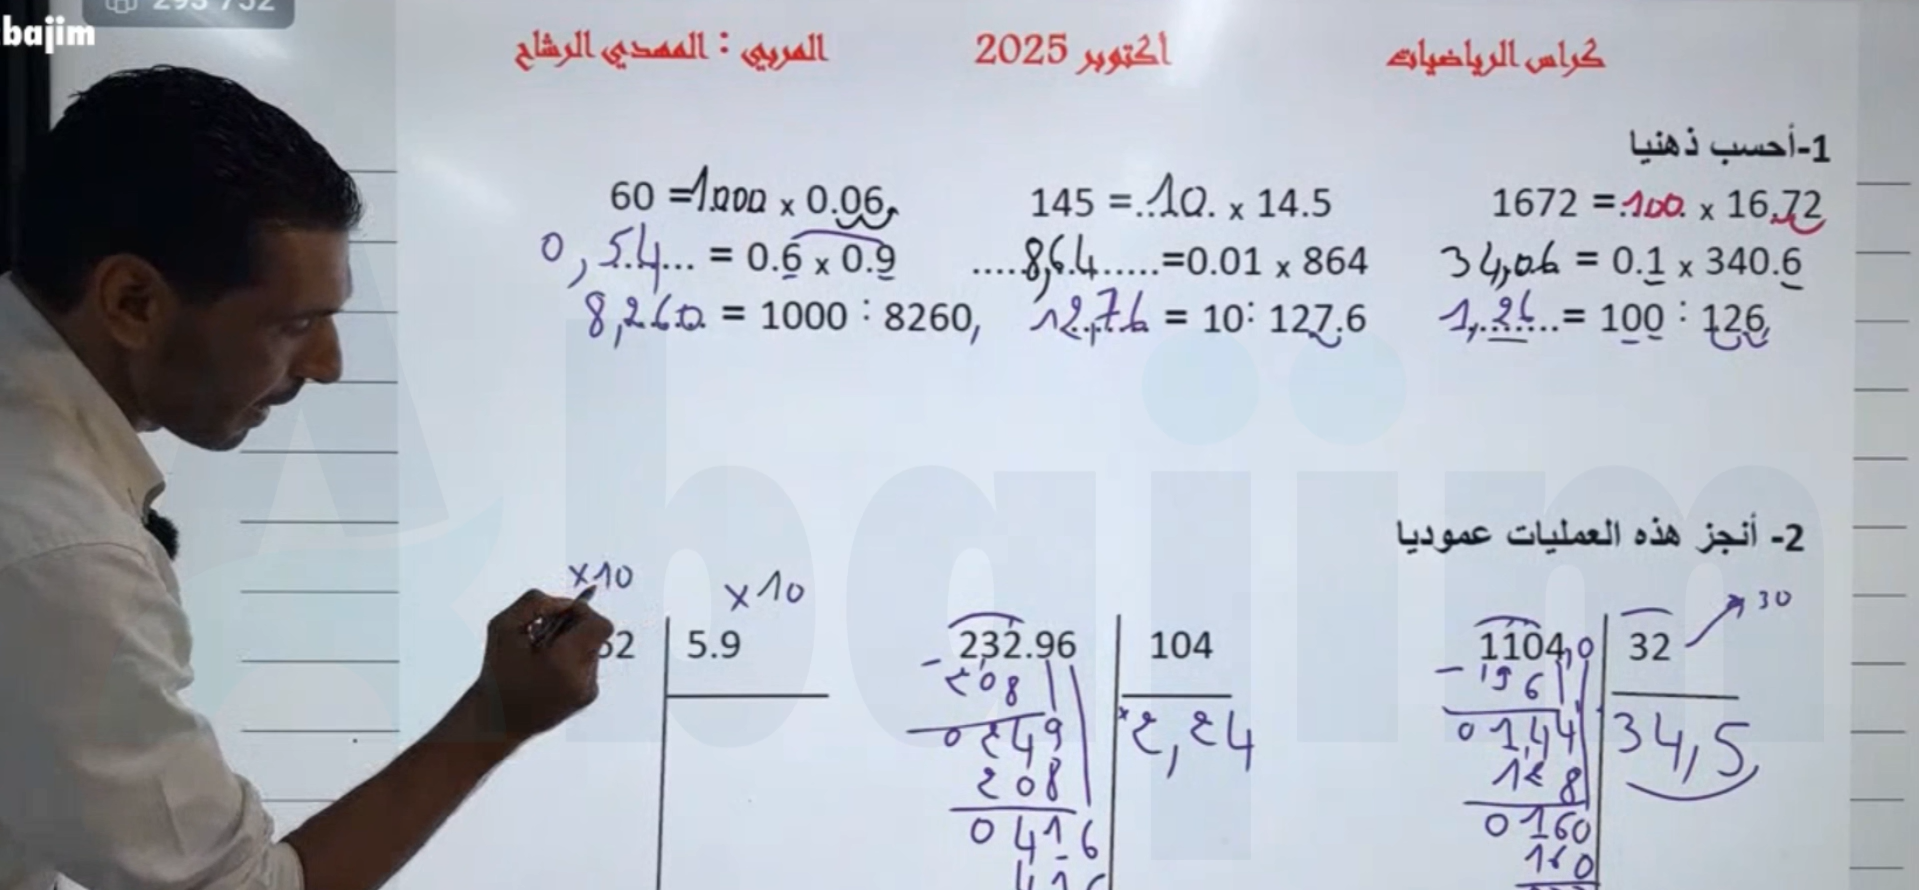 293 752
bajim
كراس الرياضيات
أكتوبر 2025
المربي : المهدي الرشاح
1-أحسب ذهنيا
1672 =.100. x 16.72
145 =..10. x 14.5
60 =1000 x 0.06,
34,06 = 0.1 x 340.6
.....8,6.4......=0.01 x 864
0,5.4... = 0.6 x 0.9
1,..26...= 100 : 126,
12,76 = 10: 127.6
8,260 = 1000 : 8260,
2- أنجز هذه العمليات عموديا
1104,0 32 30
- 96
34,5
0144
128
0160
160
232.96 104
- 208
2,24
0249
208
0416
x10 x10
5.9
Abajim